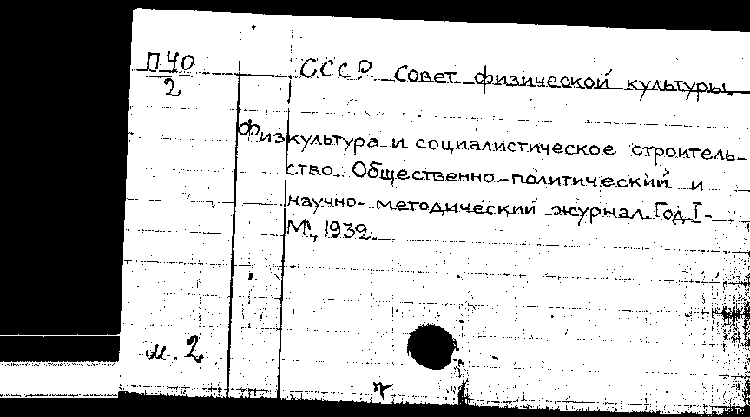 П40
2
СССР. Совет физической культуры.
Физкультура и социалистическое строитель-
ство. Общественно-политический и
научно-методический журнал. Год I-
М., 1932.
м. 2